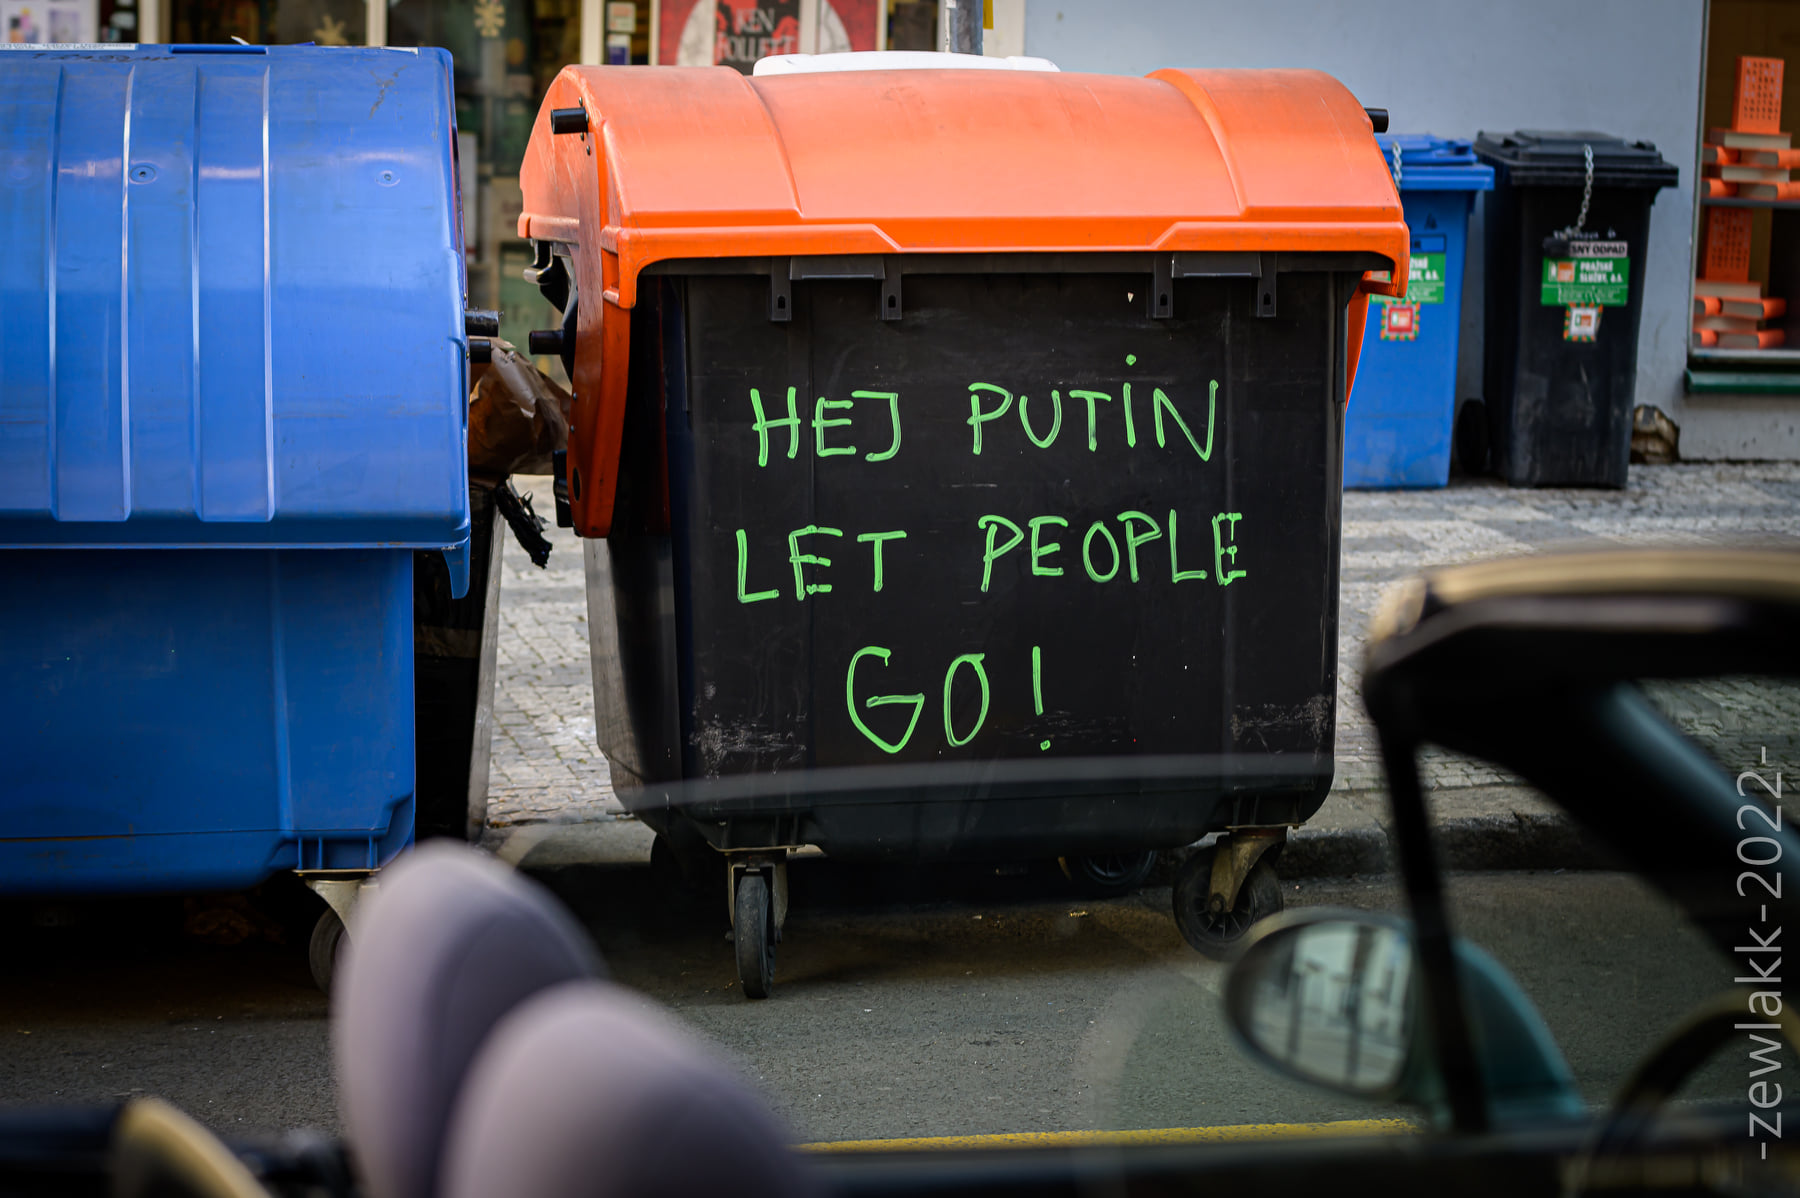 KEN
FOLLETT
HEJ PUTIN
LET PEOPLE
GO!
SNÝ ODPAD
PRAŽSKÉ
SLUŽBY, a.s.
-zewlakk-2022-